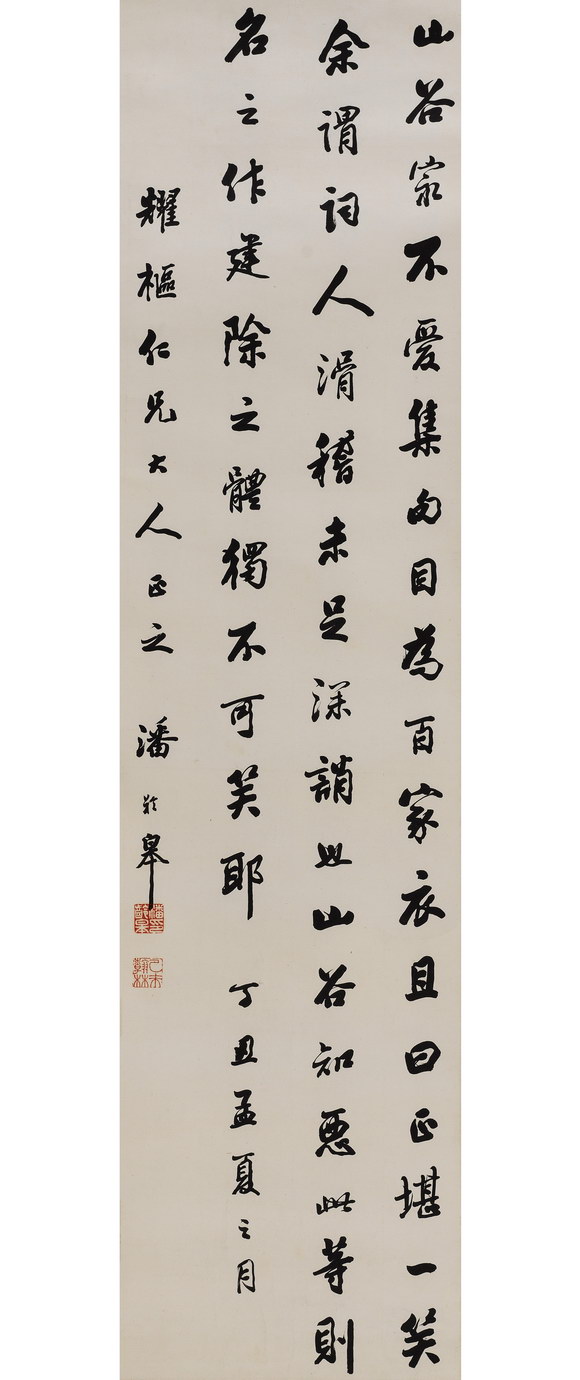 山谷㝡不愛集句目為百家衣且曰正堪一笑
余謂詞人滑稽未足深誚也山谷知惡此等則
名之作建除之體獨不可笑耶 丁丑孟夏之月
耀樞仁兄大人正之 潘齡皋
潘印齡皋
乙未翰林